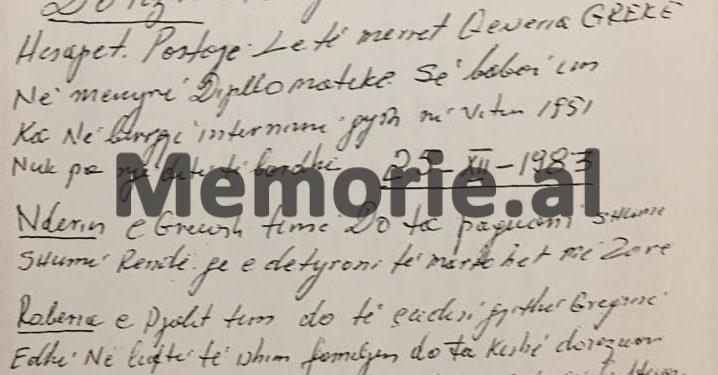 Hesapet. Postoje. Le të merret Qeveria GREKE
Në menyrë Dipllomatike. Se babai im
Ka Në burgje internimi gjysh në Vitin 1951
Nuk pa një ditë të bardhë 25 - XII - 1983
Memorie.al
Nderin e Gruesh time Do ta paguani SHUME
SHUME Rendë qe e detyroni të martohet me Zorë
Roberia e Djalit tim do të gjithë Greqinë
Edhe Në luftë të ishim familjen do ta kishë dorezuar